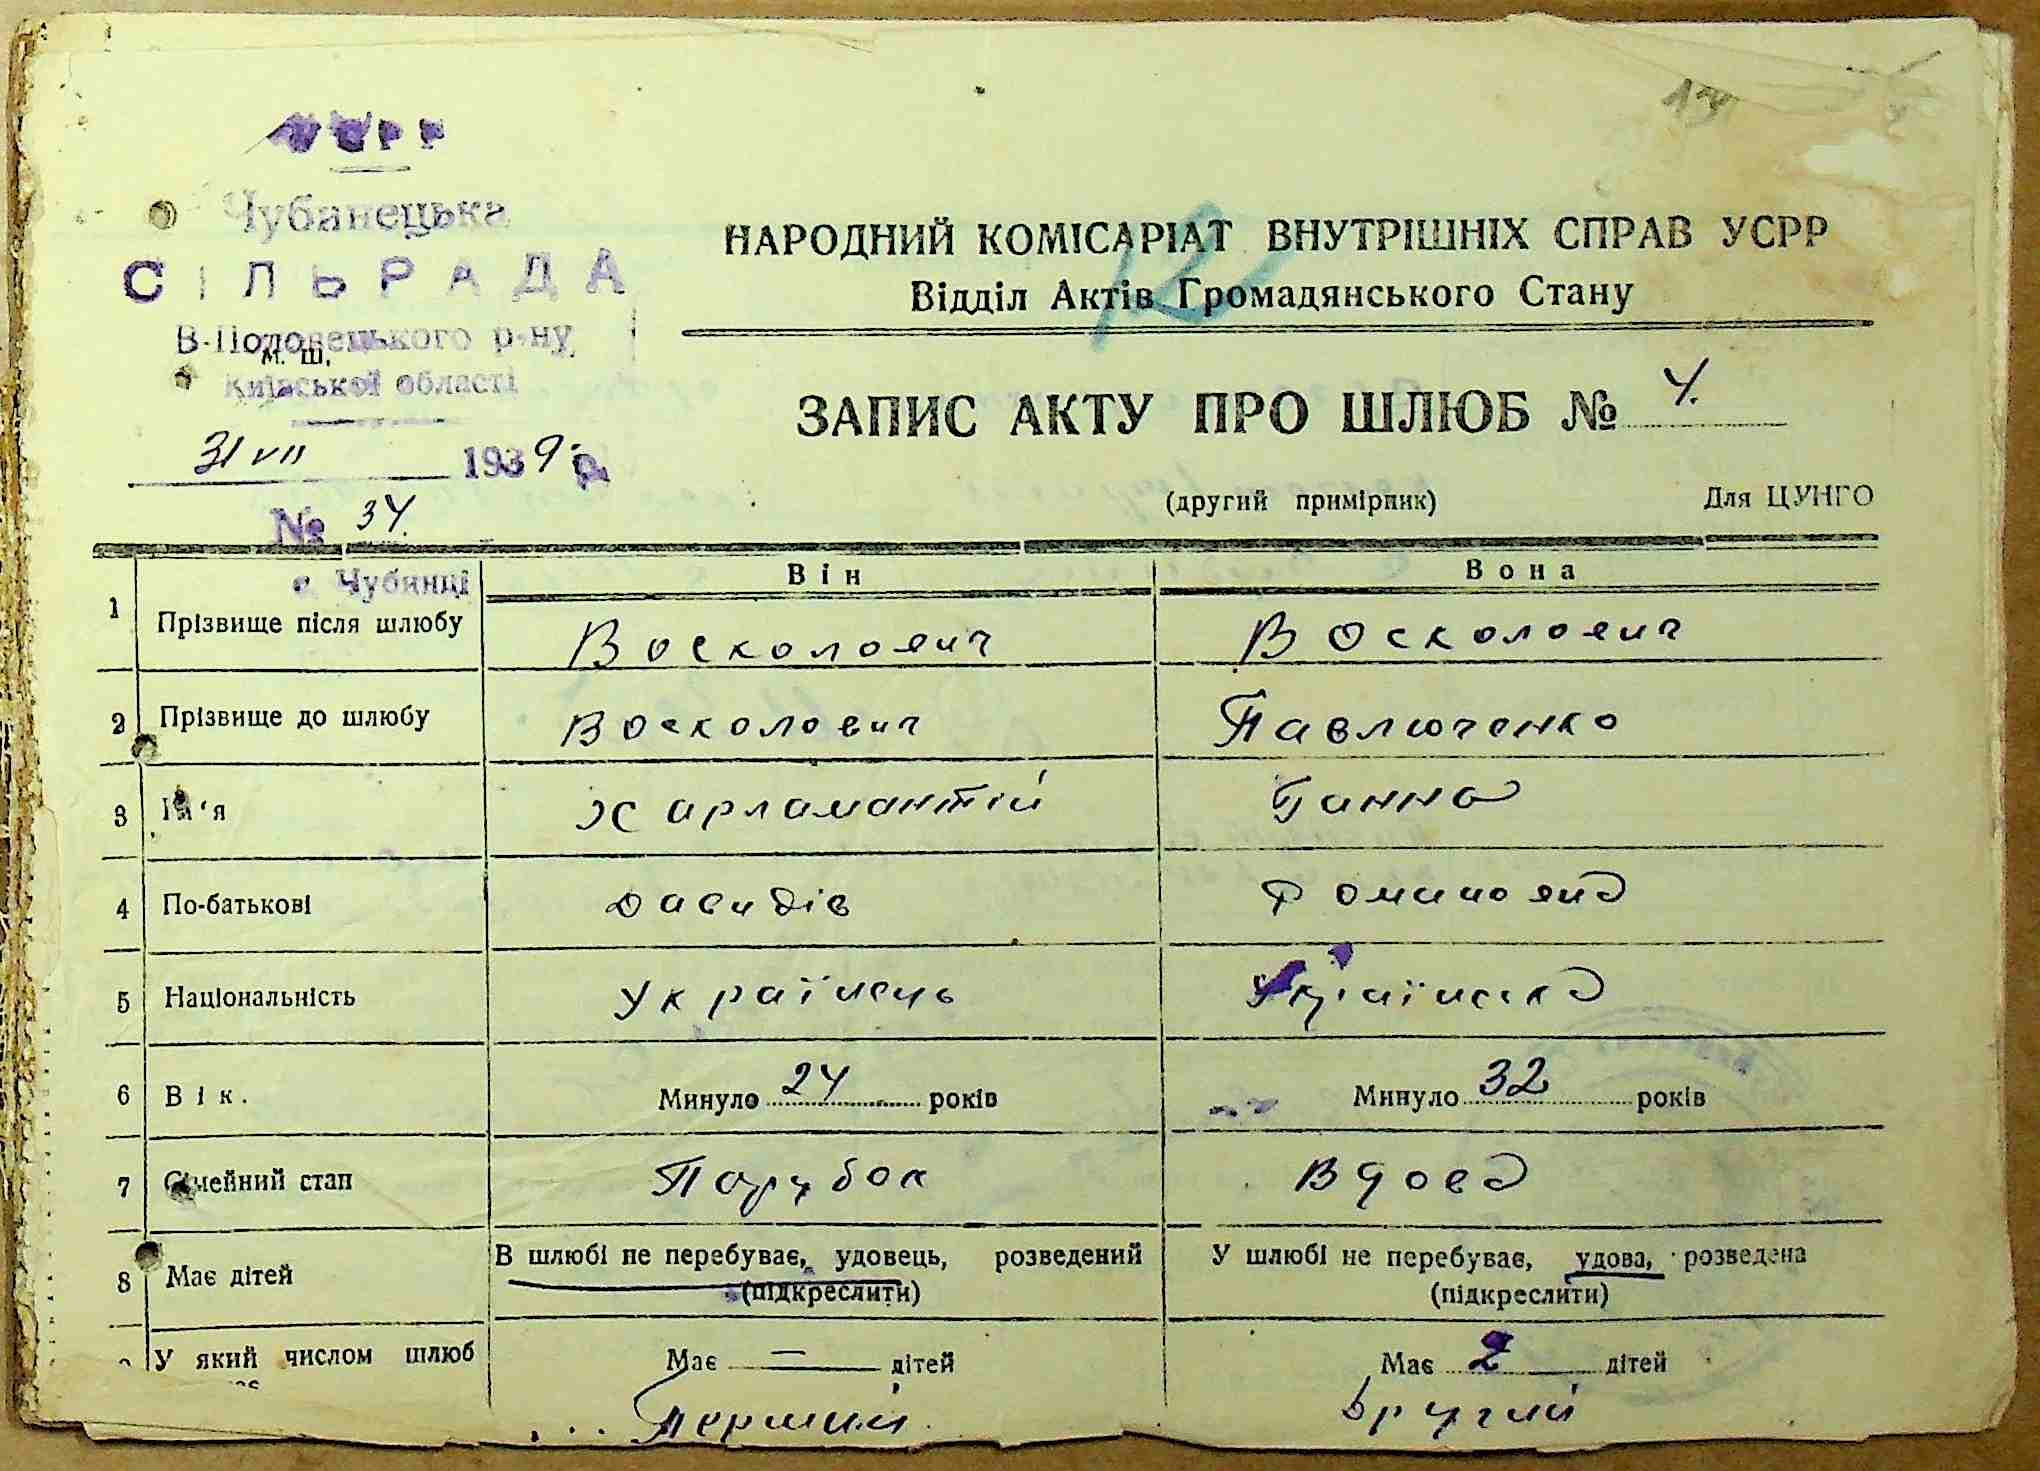 УСРР
13
Чубинецька
СІЛЬРАДА
В-Половецького р-ну
М. Ш.
Київської області
31 VII 1939 р.
№ 34.
12
НАРОДНИЙ КОМІСАРІАТ ВНУТРІШНІХ СПРАВ УСРР
Відділ Актів Громадянського Стану
ЗАПИС АКТУ ПРО ШЛЮБ № 4.
(другий примірник) Для ЦУНГО
с. Чубинці Він Вона
1 Прізвище після шлюбу Восколович Восколович
2 Прізвище до шлюбу Восколович Павлюченко
3 Ім'я Харламантій Ганна
4 По-батькові Давидів Романовна
5 Національність Українець Українка
6 Вік. Минуло 24 років Минуло 32 років
7 Сімейний стан Парубок Вдова
В шлюбі не перебуває, удовець, розведений У шлюбі не перебуває, удова, розведена
(підкреслити) (підкреслити)
8 Має дітей
У який числом шлюб Має — дітей Має 2 дітей
Перший Другий